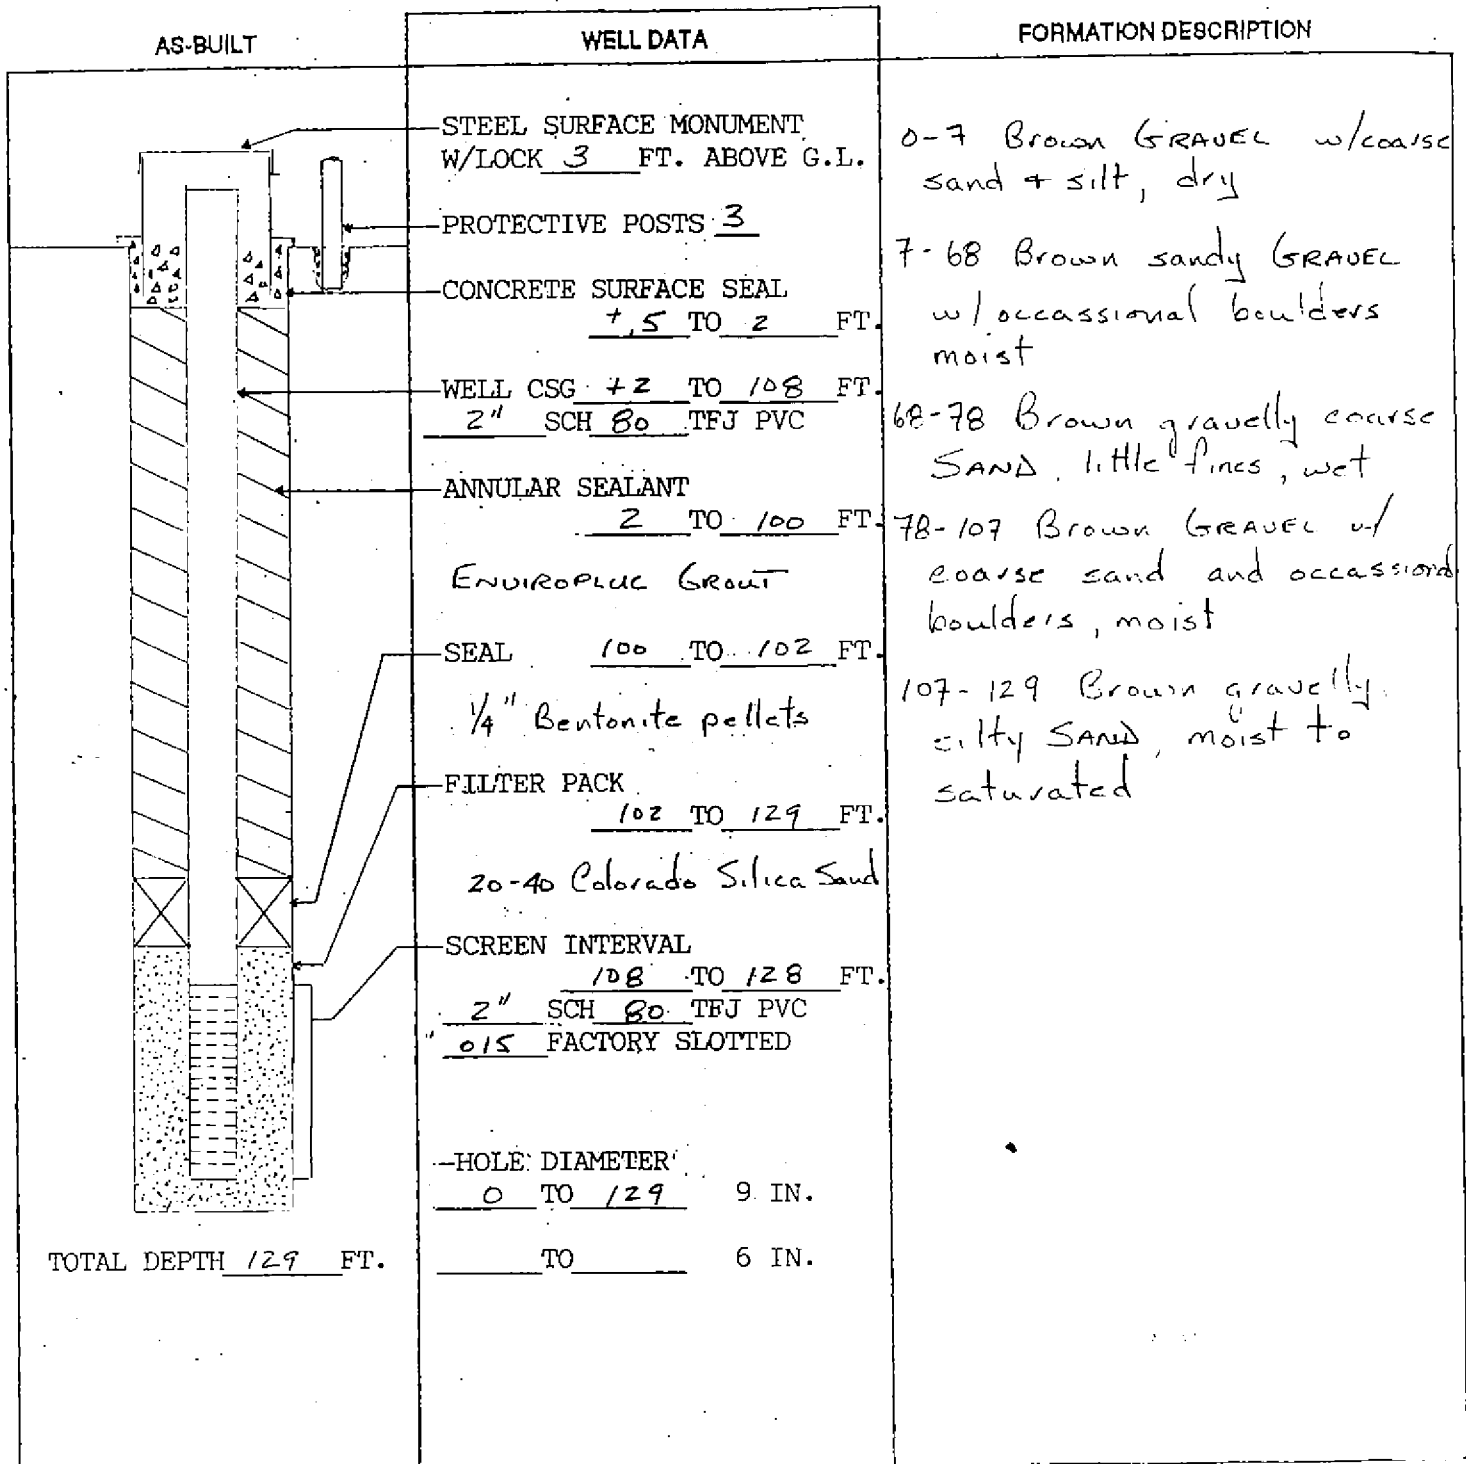 AS-BUILT
WELL DATA
FORMATION DESCRIPTION
STEEL SURFACE MONUMENT
W/LOCK 3 FT. ABOVE G.L.
PROTECTIVE POSTS 3
CONCRETE SURFACE SEAL
+.5 TO 2 FT.
WELL CSG +2 TO 108 FT.
2" SCH 80 TFJ PVC
ANNULAR SEALANT
2 TO 100 FT.
ENVIROPLUG GROUT
SEAL 100 TO 102 FT.
1/4" Bentonite pellets
FILTER PACK
102 TO 129 FT.
20-40 Colorado Silica Sand
SCREEN INTERVAL
108 TO 128 FT.
2" SCH 80 TFJ PVC
" 015 FACTORY SLOTTED
HOLE DIAMETER
0 TO 129 9 IN.
TO 6 IN.
TOTAL DEPTH 129 FT.
0-7 Brown GRAVEL w/coarse
sand + silt, dry
7-68 Brown sandy GRAVEL
w/occassional boulders
moist
68-78 Brown gravelly coarse
SAND, little fines, wet
78-107 Brown GRAVEL w/
coarse sand and occassional
boulders, moist
107-129 Brown gravelly
silty SAND, moist to
saturated